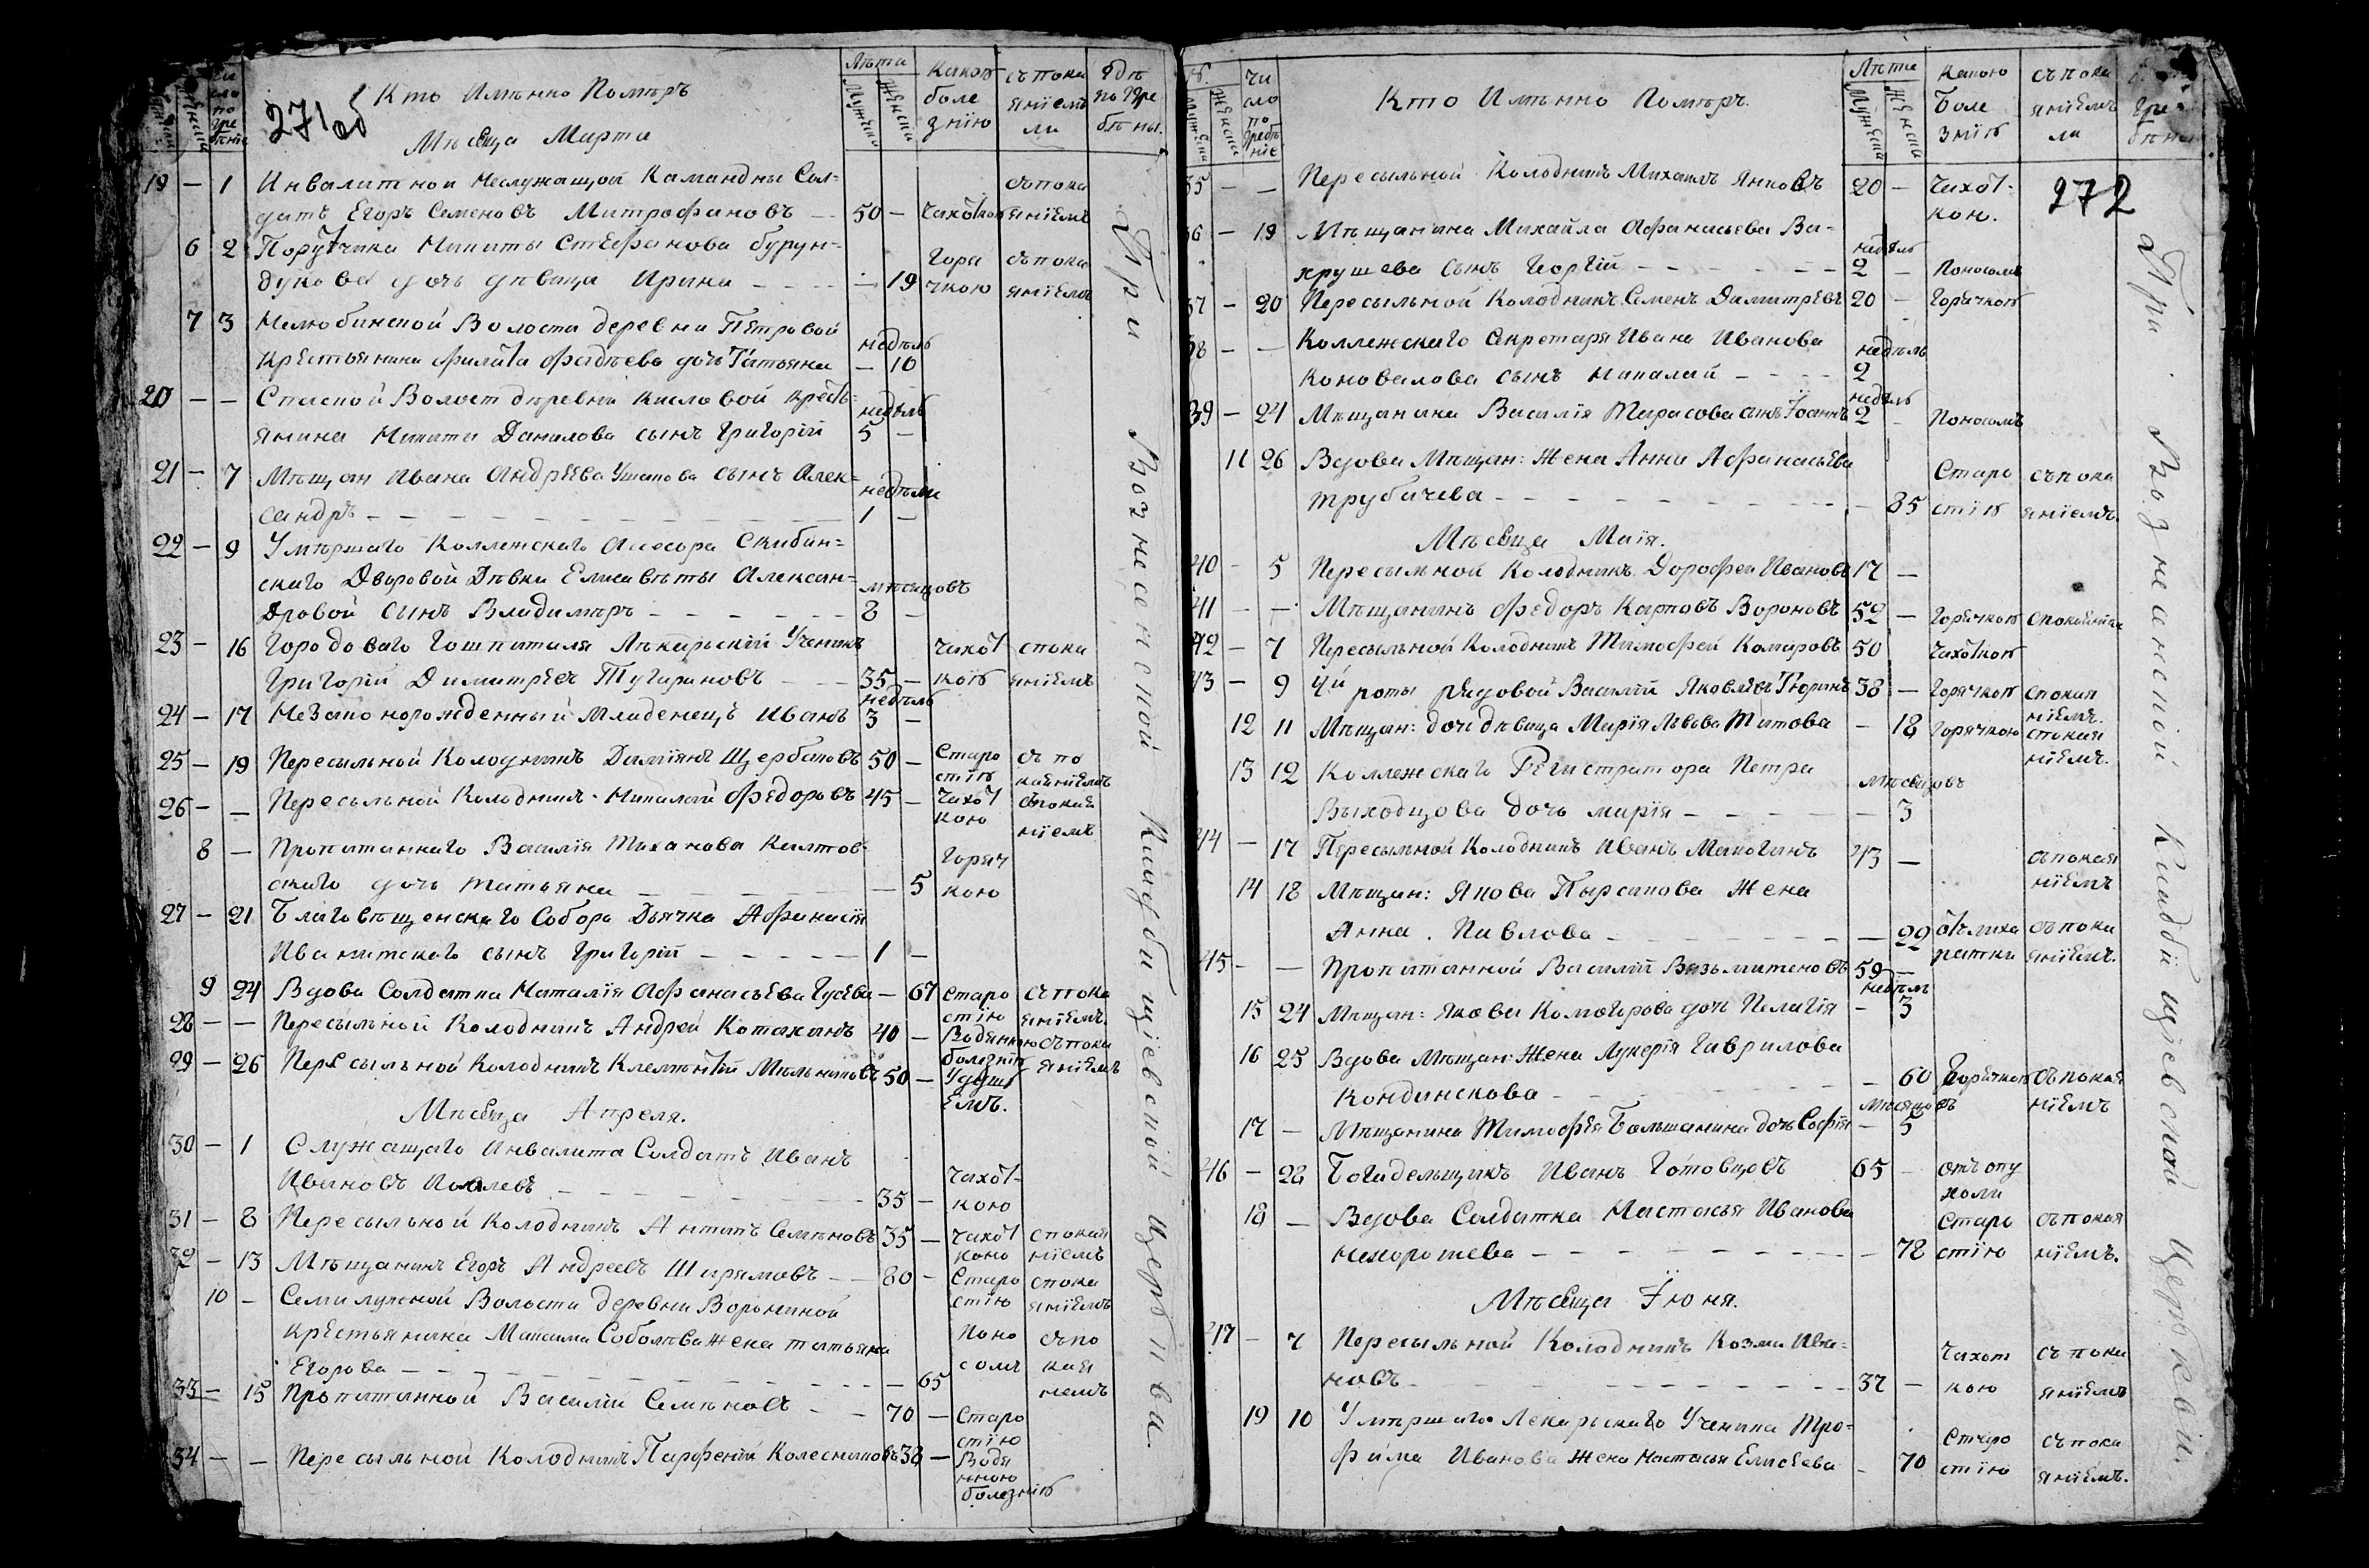 271 об
Кто Имѣнно Помѣръ
Мѣсяца Марта
Лѣта
Мужеска
Женска
какою
боле
знїю
съ пока
янїемъ
ли
гдѣ
погре
бѣны.
19 — 1 Инвалитной Неслужащой Командны Сол=
датъ Егоръ Семеновъ Митрофановъ — 50 — Чахоткою съ покаянїемъ
6 2 Порутчика Никиты Стефанова бурун=
дукова дочь дѣвица Ирина — — — 19 Горячкою съ покаянїемъ
7 3 Нелюбинской Волости деревни Петровой
Крестьянина Филата Фадѣева дочь Татьяна недѣль — 10
20 — — Спаской Волост деревни Кисловой кресть=
янина Никиты Данилова сынъ Григорїй недѣль 5 —
21 — 7 Мѣщан Ивана Андреева Ушакова сынъ Алек=
сандръ — — — недѣли 1 —
22 — 9 Умѣршаго Коллежскаго Асесора Скибин=
скаго Дворовой Дѣвки Елисаветы Алексан=
дровой Сынъ Владимѣръ — — — мѣсяцовъ 8 —
23 — 16 Городоваго Гошпиталя Лѣкарьскїй Ученикъ
Григорїй Димитрѣевъ Тугариновъ — — 35 — Чахоткою съ покаянїемъ
24 — 17 Незаконорожденный Младенецъ Иванъ недѣль 3 —
25 — 19 Пересыльной Колодникъ Дамїянъ Щербаковъ 50 — Старостїю съ покаянїемъ
26 — — Пересыльной Колодникъ Николай Федоровъ 45 — Чахоткою съ покаянїемъ
8 — Пропитаннаго Василїя Тиханова Калтов=
скаго дочь татьяна — — — 5 Горячкою
27 — 21 Благовѣщенскаго Собора Дьячка Афанасїя
Иваницкого сынъ Григорїй — — — 1 —
9 24 Вдова Солдатка Наталїя Афанасьева Гусева — 67 Старостїю съ покаянїемъ.
28 — — Пересыльной Колодникъ Андрей Котакинъ 40 — Водяною болезнїю съ покаянїемъ
29 — 26 Пересыльной Колодникъ Клемѣнтїй Мѣльниковъ 50 — Удушьемъ.
Мѣсяца Апреля.
30 — 1 Служащаго Инвалита Солдатъ Иванъ
Ивановъ — — — 35 — Чахоткою
31 — 8 Пересыльной Колодникъ Антипъ Семѣновъ 35 — Чахоткою с покаянїемъ
32 — 13 Мѣщанинъ Егоръ Андреевъ Ширямовъ — — 80 — Старостїю с покаянїемъ
10 — Семилужной Волости деревни Ворониной
Крестьянина Максима Соболѣва жена татьяна
Егорова — — — 65 Поносомъ съ покаянемъ
33 — 15 Пропитанной Василїй Семѣновъ — — 70 — Старостїю
34 — — Пересыльной Колодникъ Парфенїй Колесниковъ 38 — Водяною болезнїю
При Вознесенской Кладбищевской церькви.
272
Мужеска
Женска
чи
сло
по
гребѣ
нїе
Кто Имѣнно Помѣръ.
Лѣта
Мужеска
Женска
какою
Боле
знїю
съ пока
янїемъ
ли
гре
бѣны
35 — — Пересыльной Колодникъ Михаилъ Янковъ 20 — Чахоткою.
36 — 19 Мѣщанина Михайла Афанасьева Ва=
хрушева сынъ Георгїй — — — недѣль 2 — Поносомъ
37 — 20 Пересыльной Колодникъ Семенъ Димитрѣвъ 20 — Горячкою
38 — — Коллежскаго Секретаря Ивана Иванова
Коновалова сынъ Николай — — — недѣль 2
39 — 24 Мѣщанина Василїя Тарасова сынъ Іоаннъ недѣль 2 — Поносомъ
11 26 Вдова Мѣщан: Жена Анна Афанасьева
трубачева — — — 85 Старостїю съ покаянїемъ.
Мѣсяца Маїя.
40 — 5 Пересыльной Колодникъ Дорофеи Ивановъ 17 —
41 — — Мѣщанинъ Федоръ Карповъ Вороновъ 52 — Горячкою
42 — 7 Пересыльной Колодникъ Тимофей Комаровъ 50 Чахоткою
43 — 9 4й роты рядовой Василїй Яковлевъ Тюринъ 38 — Горячкою с покаянїемъ.
12 11 Мѣщан: дочь дѣвица Марїя Львова Титова — 18 Горячкою с покаянїемъ.
13 12 Коллежскаго Регистратора Петра
Выходцова дочь марїя — — — мѣсяцовъ 3
44 — 17 Пересыльной Колодникъ Иванъ Макогинъ 43 — съ покаянїемъ
14 18 Мѣщан: Якова Пырсикова Жена
Анна Павлова — — — 22 отъ лихаратки съ покаянїемъ.
45 — — Пропитанной Василїй Вязьмитеновъ 59 —
15 24 Мѣщан: Якова Комогорова дочь Пелагїя недѣль — 3
16 25 Вдова Мѣщан: Жена Лукерїя Гаврилова
Кондинскова — — — 60 Горячкою съ покаянїемъ
17 — Мѣщанина Тимофѣя Большанина дочь Софїя мѣсяцовъ — 5
46 — 28 Богадельщикъ Иванъ Готовцовъ 65 — отъ опухоли
18 — Вдова Солдатка Настасья Иванова
нехорошева — — — 78 Старостїю съ покаянїемъ.
Мѣсяца Їюня.
47 — 7 Пересыльной Колодникъ Козма Ива=
новъ — — — 37 — Чахоткою съ покаянїемъ
19 10 Умѣршаго Лекарьскаго Ученика Тро=
фима Иванова Жена Настасья Елисѣева — 70 Старостїю съ покаянїемъ.
При Вознесенской Кладбищевской церькви